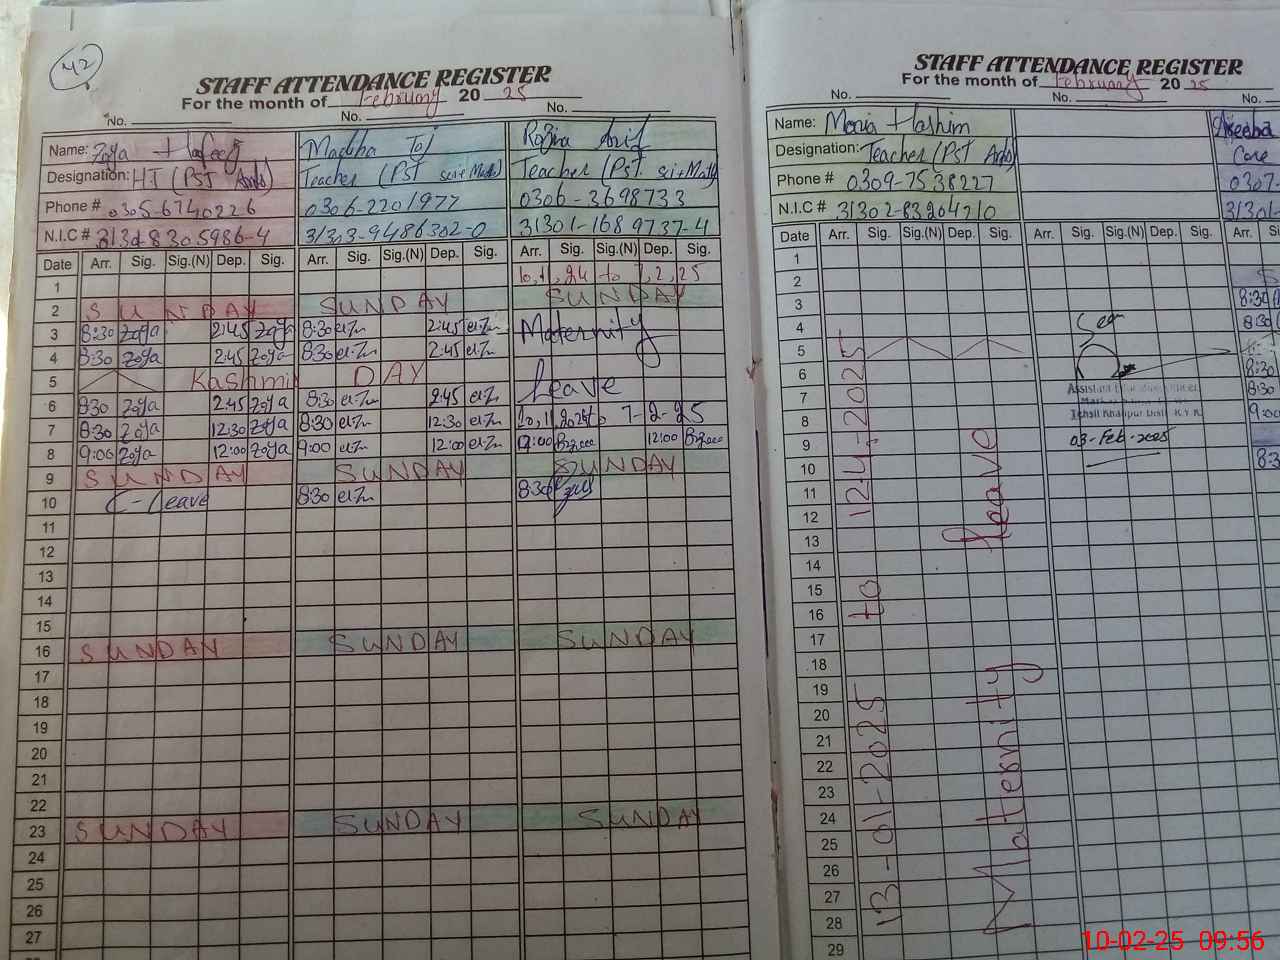 42
STAFF ATTENDANCE REGISTER
For the month of February 20 25
No. No. No.
Name: Zoya Hafeez Madiha Taj Rozina Arif
Designation: HT (PST Arts) Teacher (PST sci+Math) Teacher (PST. sci+Math)
Phone # 0305-6740226 0306-2201977 0306-3698733
N.I.C # 31303-9486302-0 31301-1689737-4
Date Arr. Sig. Sig.(N) Dep. Sig. Arr. Sig. Sig.(N) Dep. Sig. Arr. Sig. Sig.(N) Dep. Sig.
1
2 SUNDAY SUNDAY SUNDAY
3 8:30 Zoya 2:45 Zoya 8:30 2:45 Maternity
4 8:30 Zoya 2:45 Zoya 8:30 2:45
5 Kashmir DAY Leave
6 8:30 Zoya 2:45 Zoya 8:30 2:45
7 8:30 Zoya 12:30 Zoya 8:30 12:30 7-2-25
8 9:00 Zoya 12:00 Zoya 9:00 12:00 12:00
9 SUNDAY SUNDAY SUNDAY
10 C-Leave 8:30 8:30
11
12
13
14
15
16 SUNDAY SUNDAY SUNDAY
17
18
19
20
21
22
23 SUNDAY SUNDAY SUNDAY
24
25
26
27
STAFF ATTENDANCE REGISTER
For the month of February 20 25
No. No. No.
Name: Monia Hashim
Designation: Teacher (PST Arts) Care
Phone # 0309-7538227 0307-
N.I.C # 31302-83204210 31301-
Date Arr. Sig. Sig.(N) Dep. Sig. Arr. Sig. Sig.(N) Dep. Sig. Arr. Sig.
1
2 S
3 8:30
4 Seen 8:30
5
6 8:30
7 8:30
8 9:00
9 03-Feb-2025
10 8:3
11
12
13
14
15
16
17
18
19
20
21
22
23
24
25
26
27
28
29
13-01-2025 to 12-4-2025
Maternity Leave
10-02-25 09:56